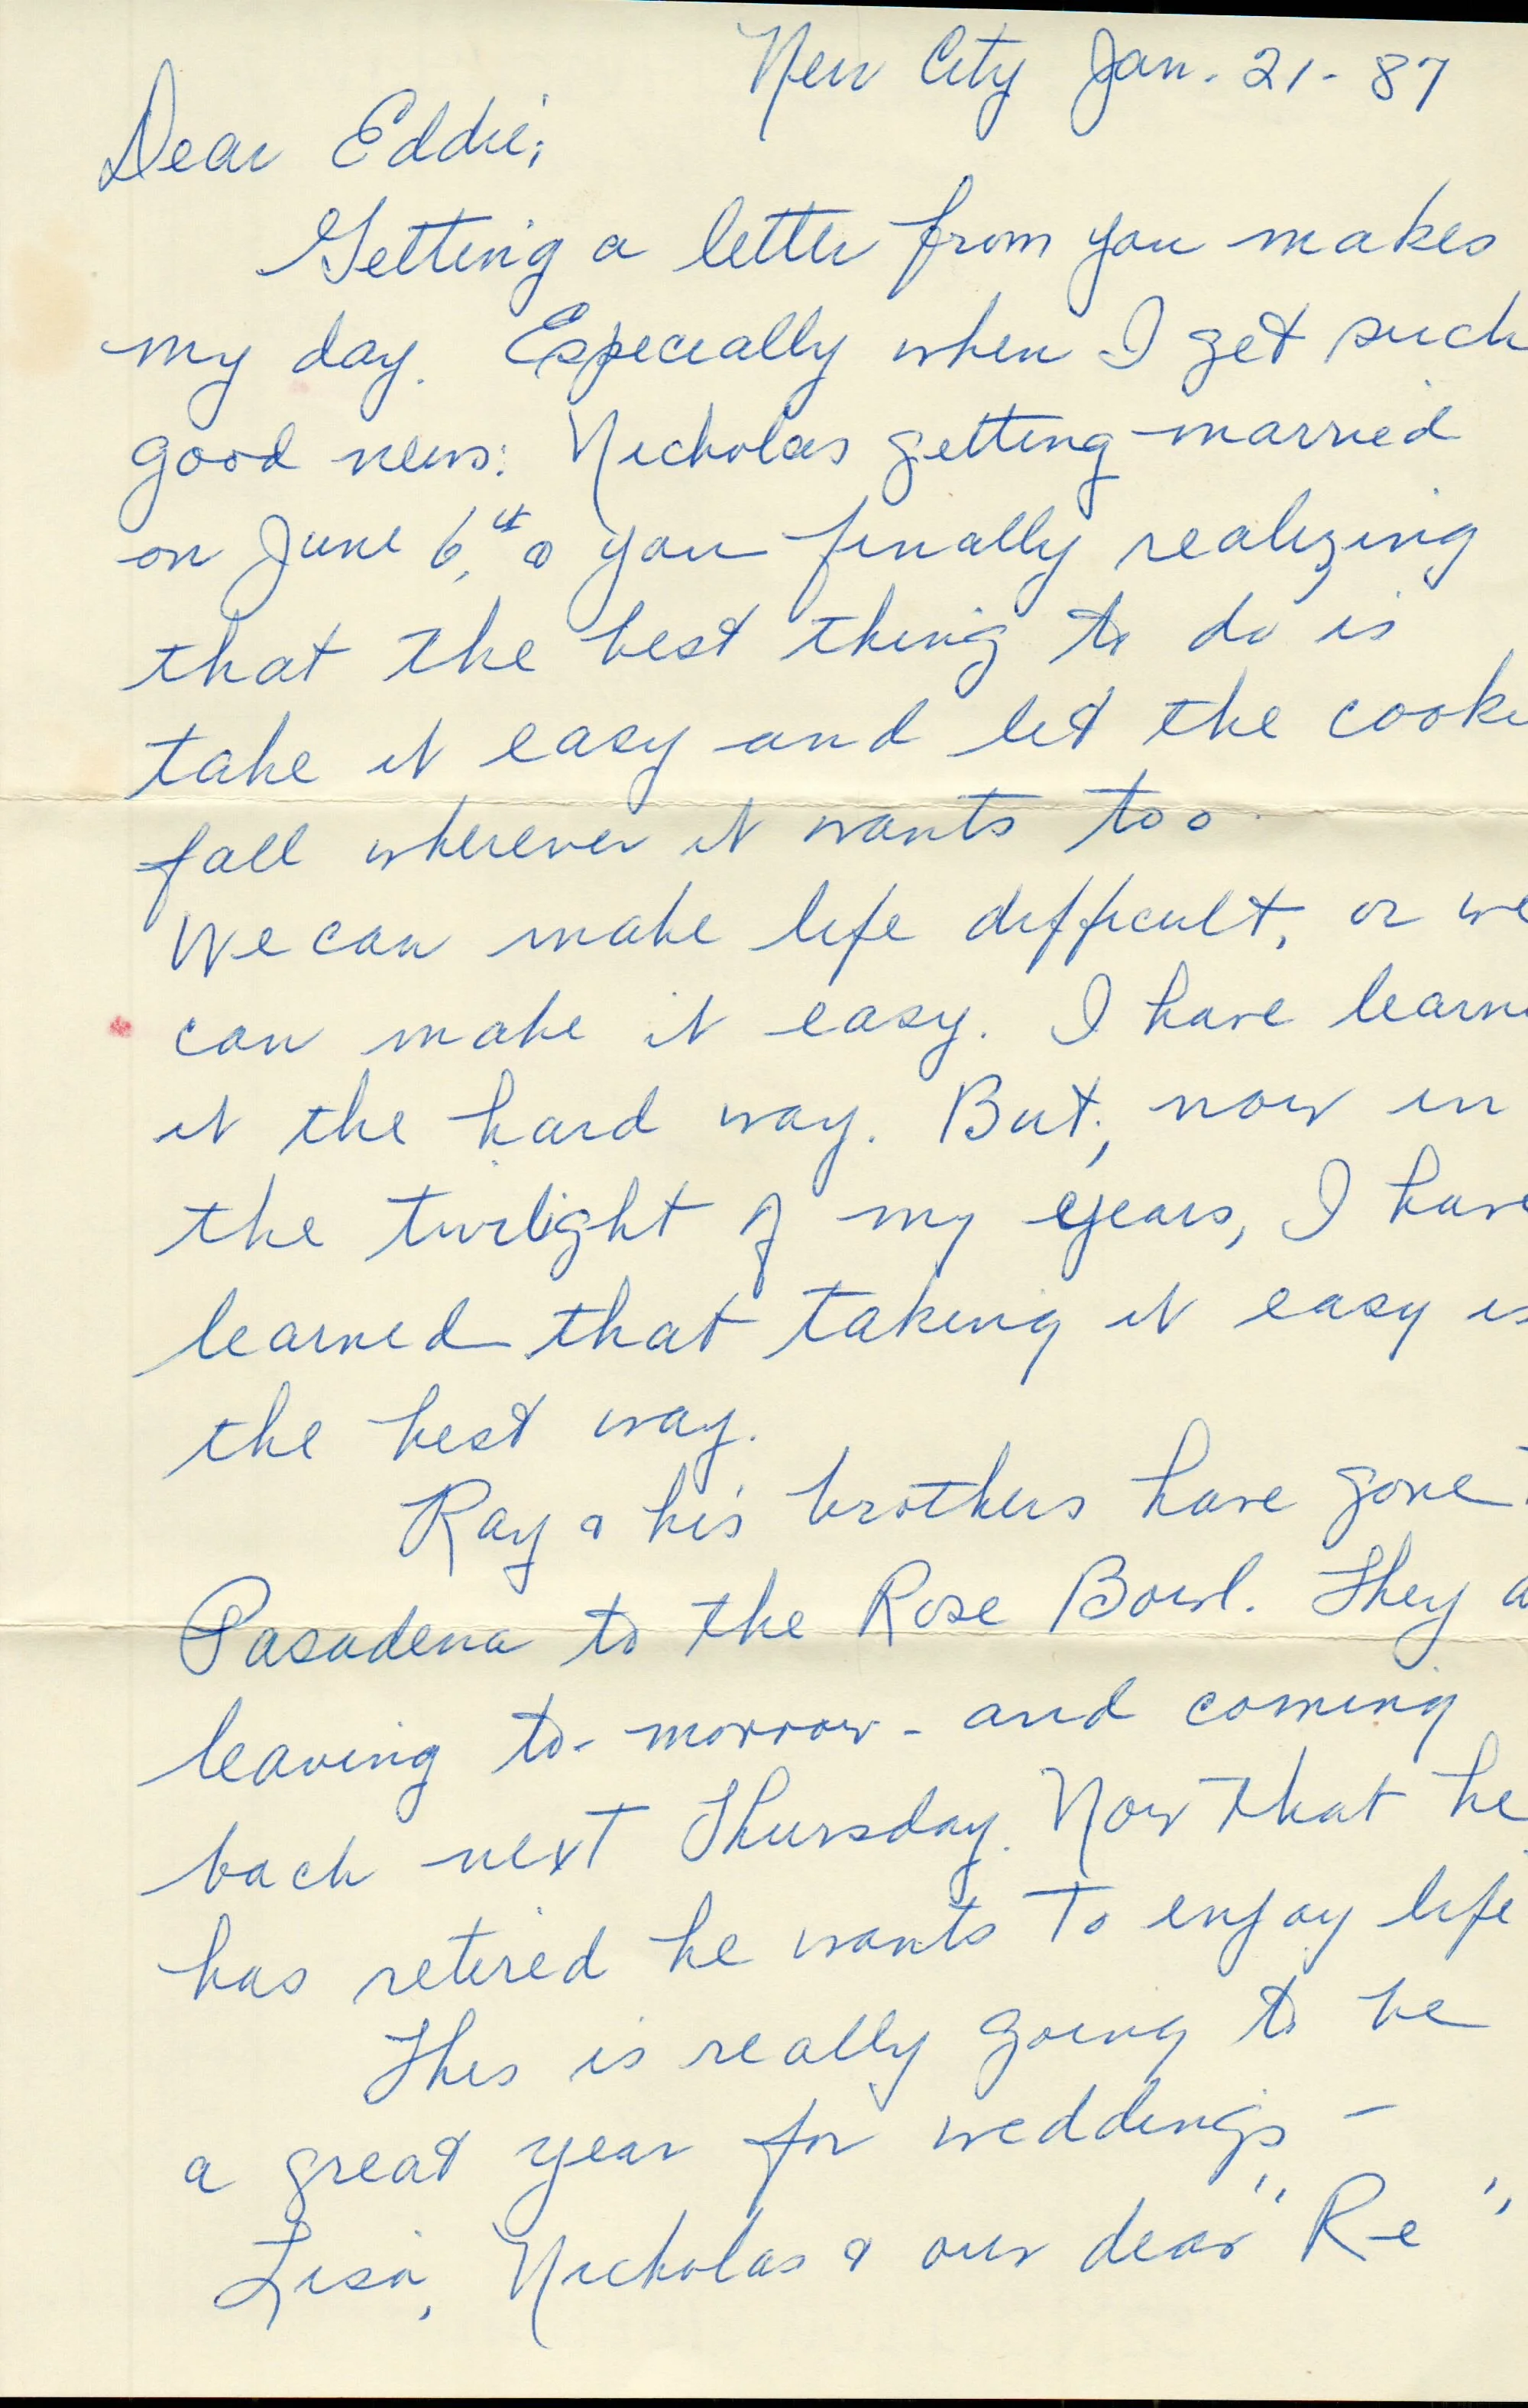 New City Jan. 21-87
Dear Eddie;
Getting a letter from you makes
my day. Especially when I get such
good news: Nicholas getting married
on June 6th, & you finally realizing
that the best thing to do is
take it easy and let the cooki
fall wherever it wants too.
We can make life difficult, or we
can make it easy. I have learn
it the hard way. But, now in
the twilight of my years, I have
learned that taking it easy is
the best way.
Ray & his brothers have gone
Pasadena to the Rose Bowl. They a
leaving to-morrow - and coming
back next Thursday. Now that he
has retired he wants to enjoy life
This is really going to be
a great year for weddings -
Lisa, Nicholas & our dear "Re"